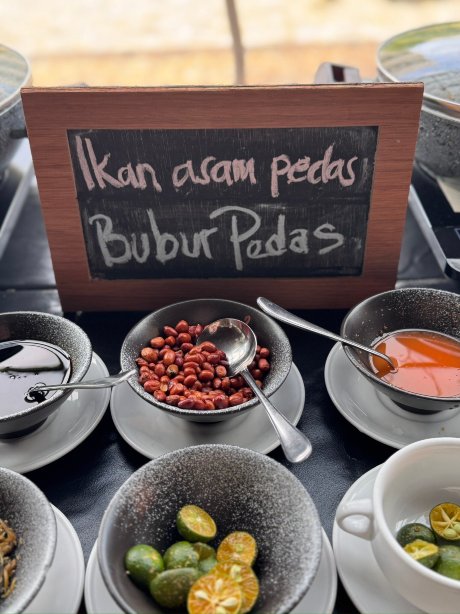 Ikan asam pedas
Bubur Pedas